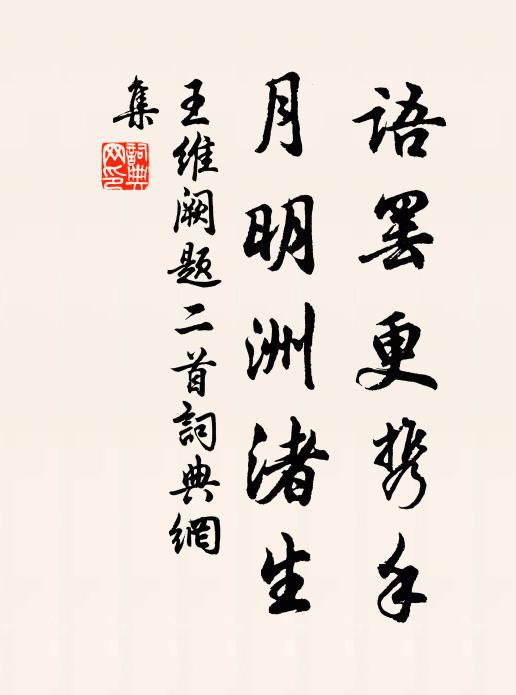 语罢更携手
月明洲渚生
王维阙题二首詞典網
集
詞典
网印